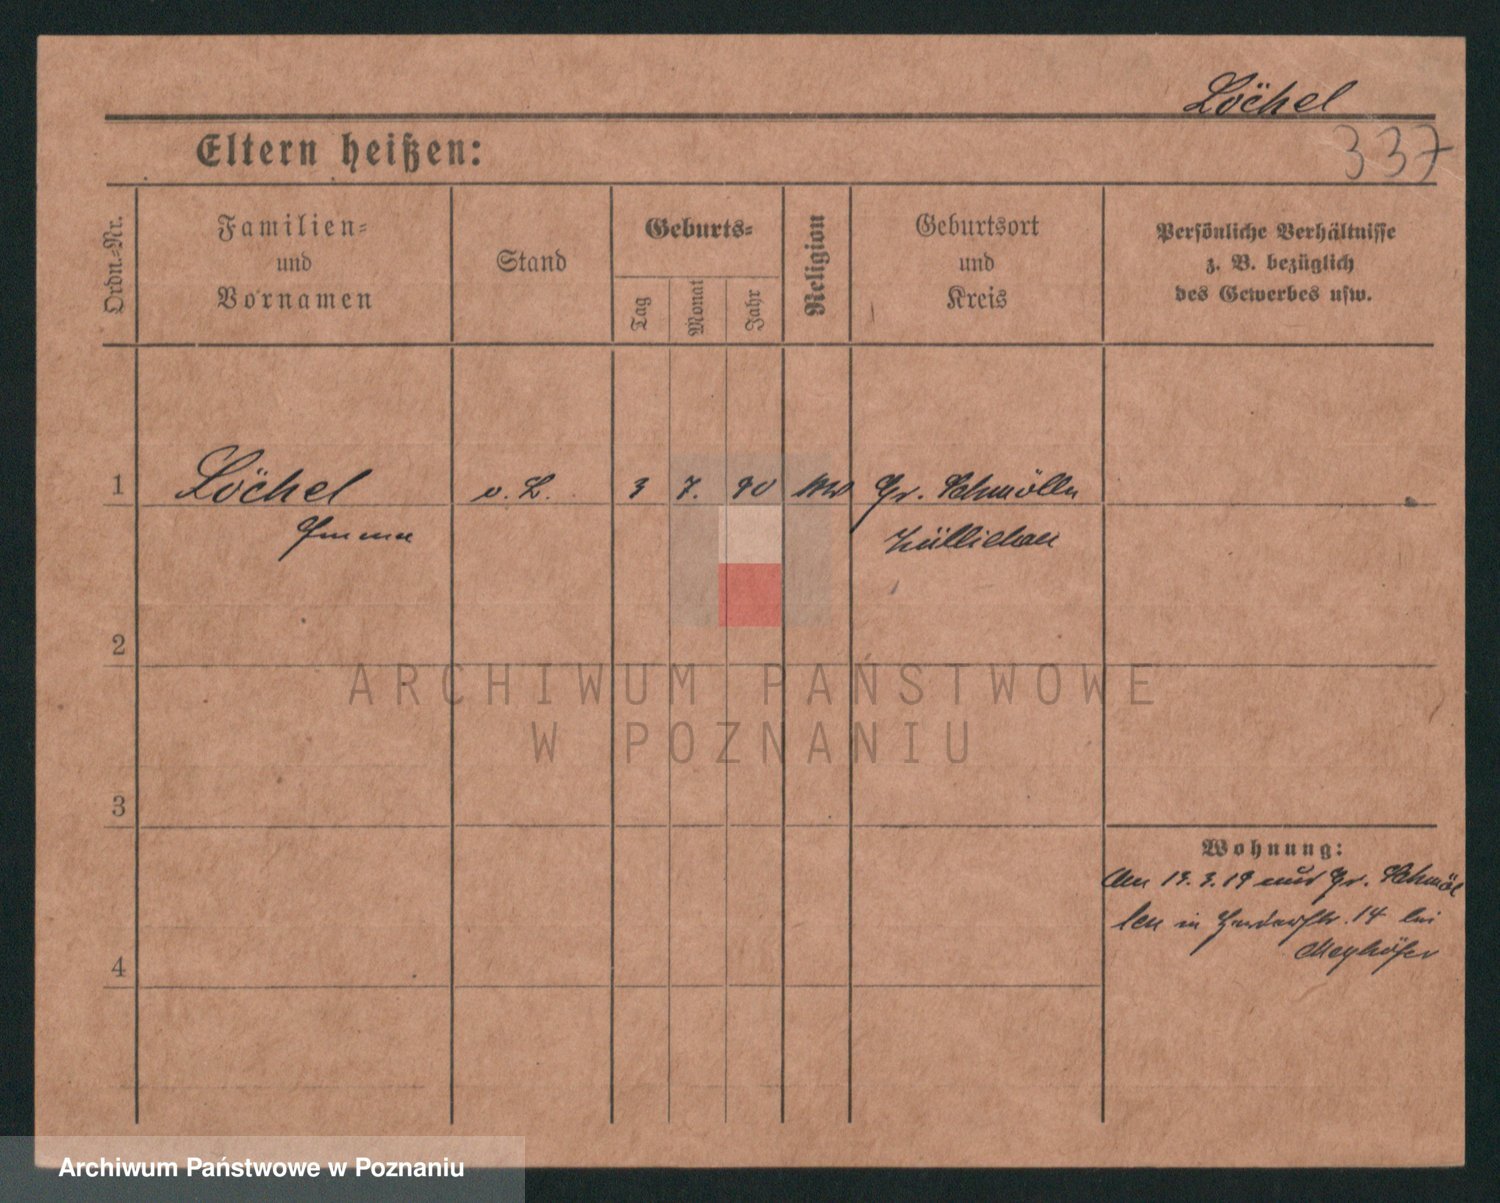 Löchel
337
Eltern heißen:
Ordn.-Nr.
Familien-
und
Vornamen
Stand
Geburts-
Tag
Monat
Jahr
Religion
Geburtsort
und
Kreis
Persönliche Verhältnisse
z. B. bezüglich
des Gewerbes usw.
1 Löchel o. B. 3 7. 90 Gr. Schmölln
Emma Züllichau
2
ARCHIWUM PAŃSTWOWE
W POZNANIU
3
Wohnung:
Am 13.3.19 aus Gr. Schmöl
len in 14 bei
4
Archiwum Państwowe w Poznaniu